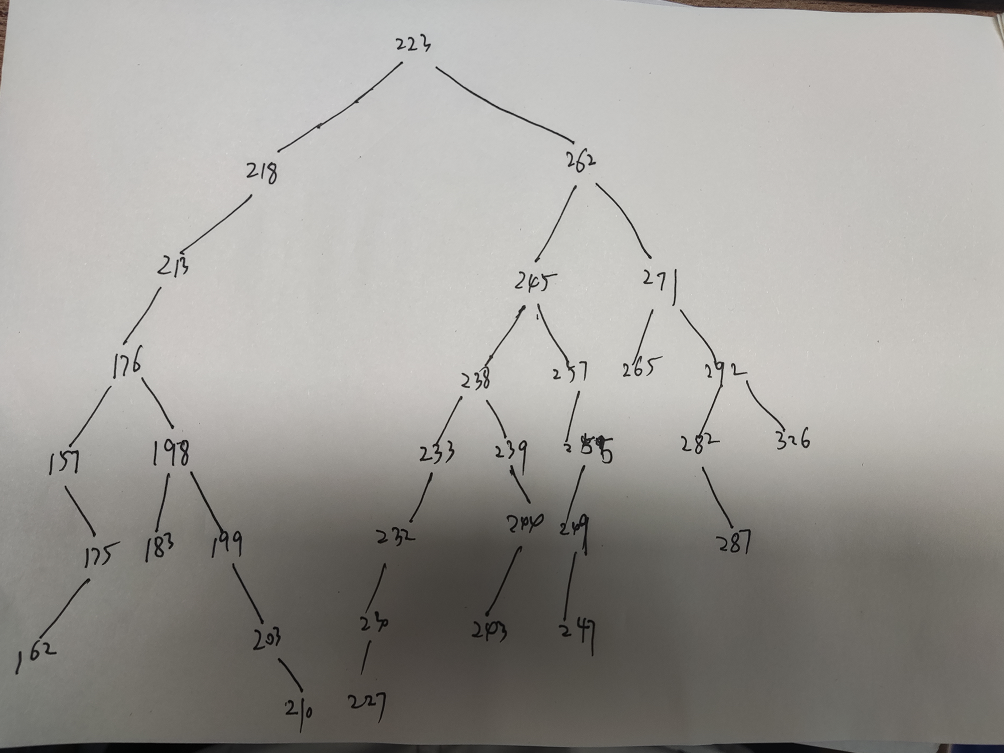 223
218 262
213 245 271
176 238 257 265 292
157 198 233 239 255 282 326
175 183 199 232 240 249 287
162 203 230 243 247
210 227